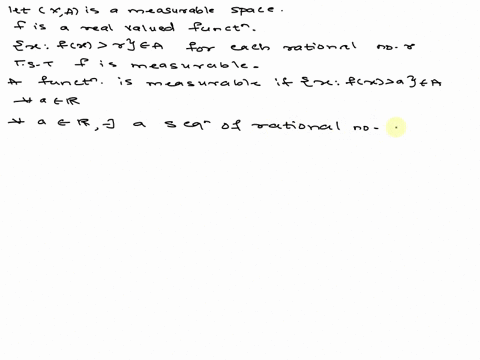 let (x,A) is a measurable space.
f is a real valued functⁿ.
{x: f(x) > r} ∈ A for each rational no. r
T.S.T f is measurable.
A functⁿ. is measurable if {x: f(x) > a} ∈ A
∀ a ∈ R
∀ a ∈ R, ∃ a seqⁿ of rational no.